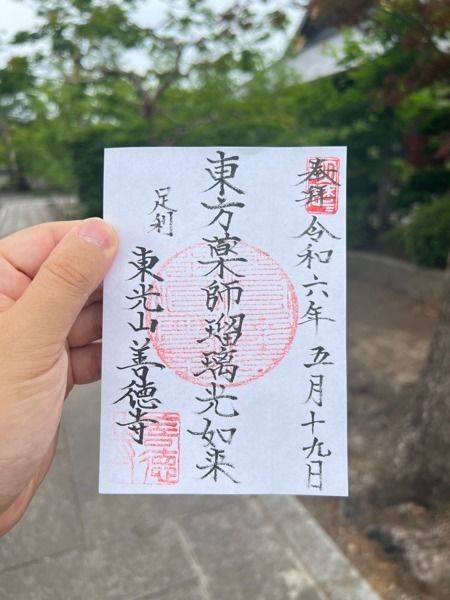 奉拝
令和六年 五月十九日
東方薬師瑠璃光如来
足利
東光山善徳寺